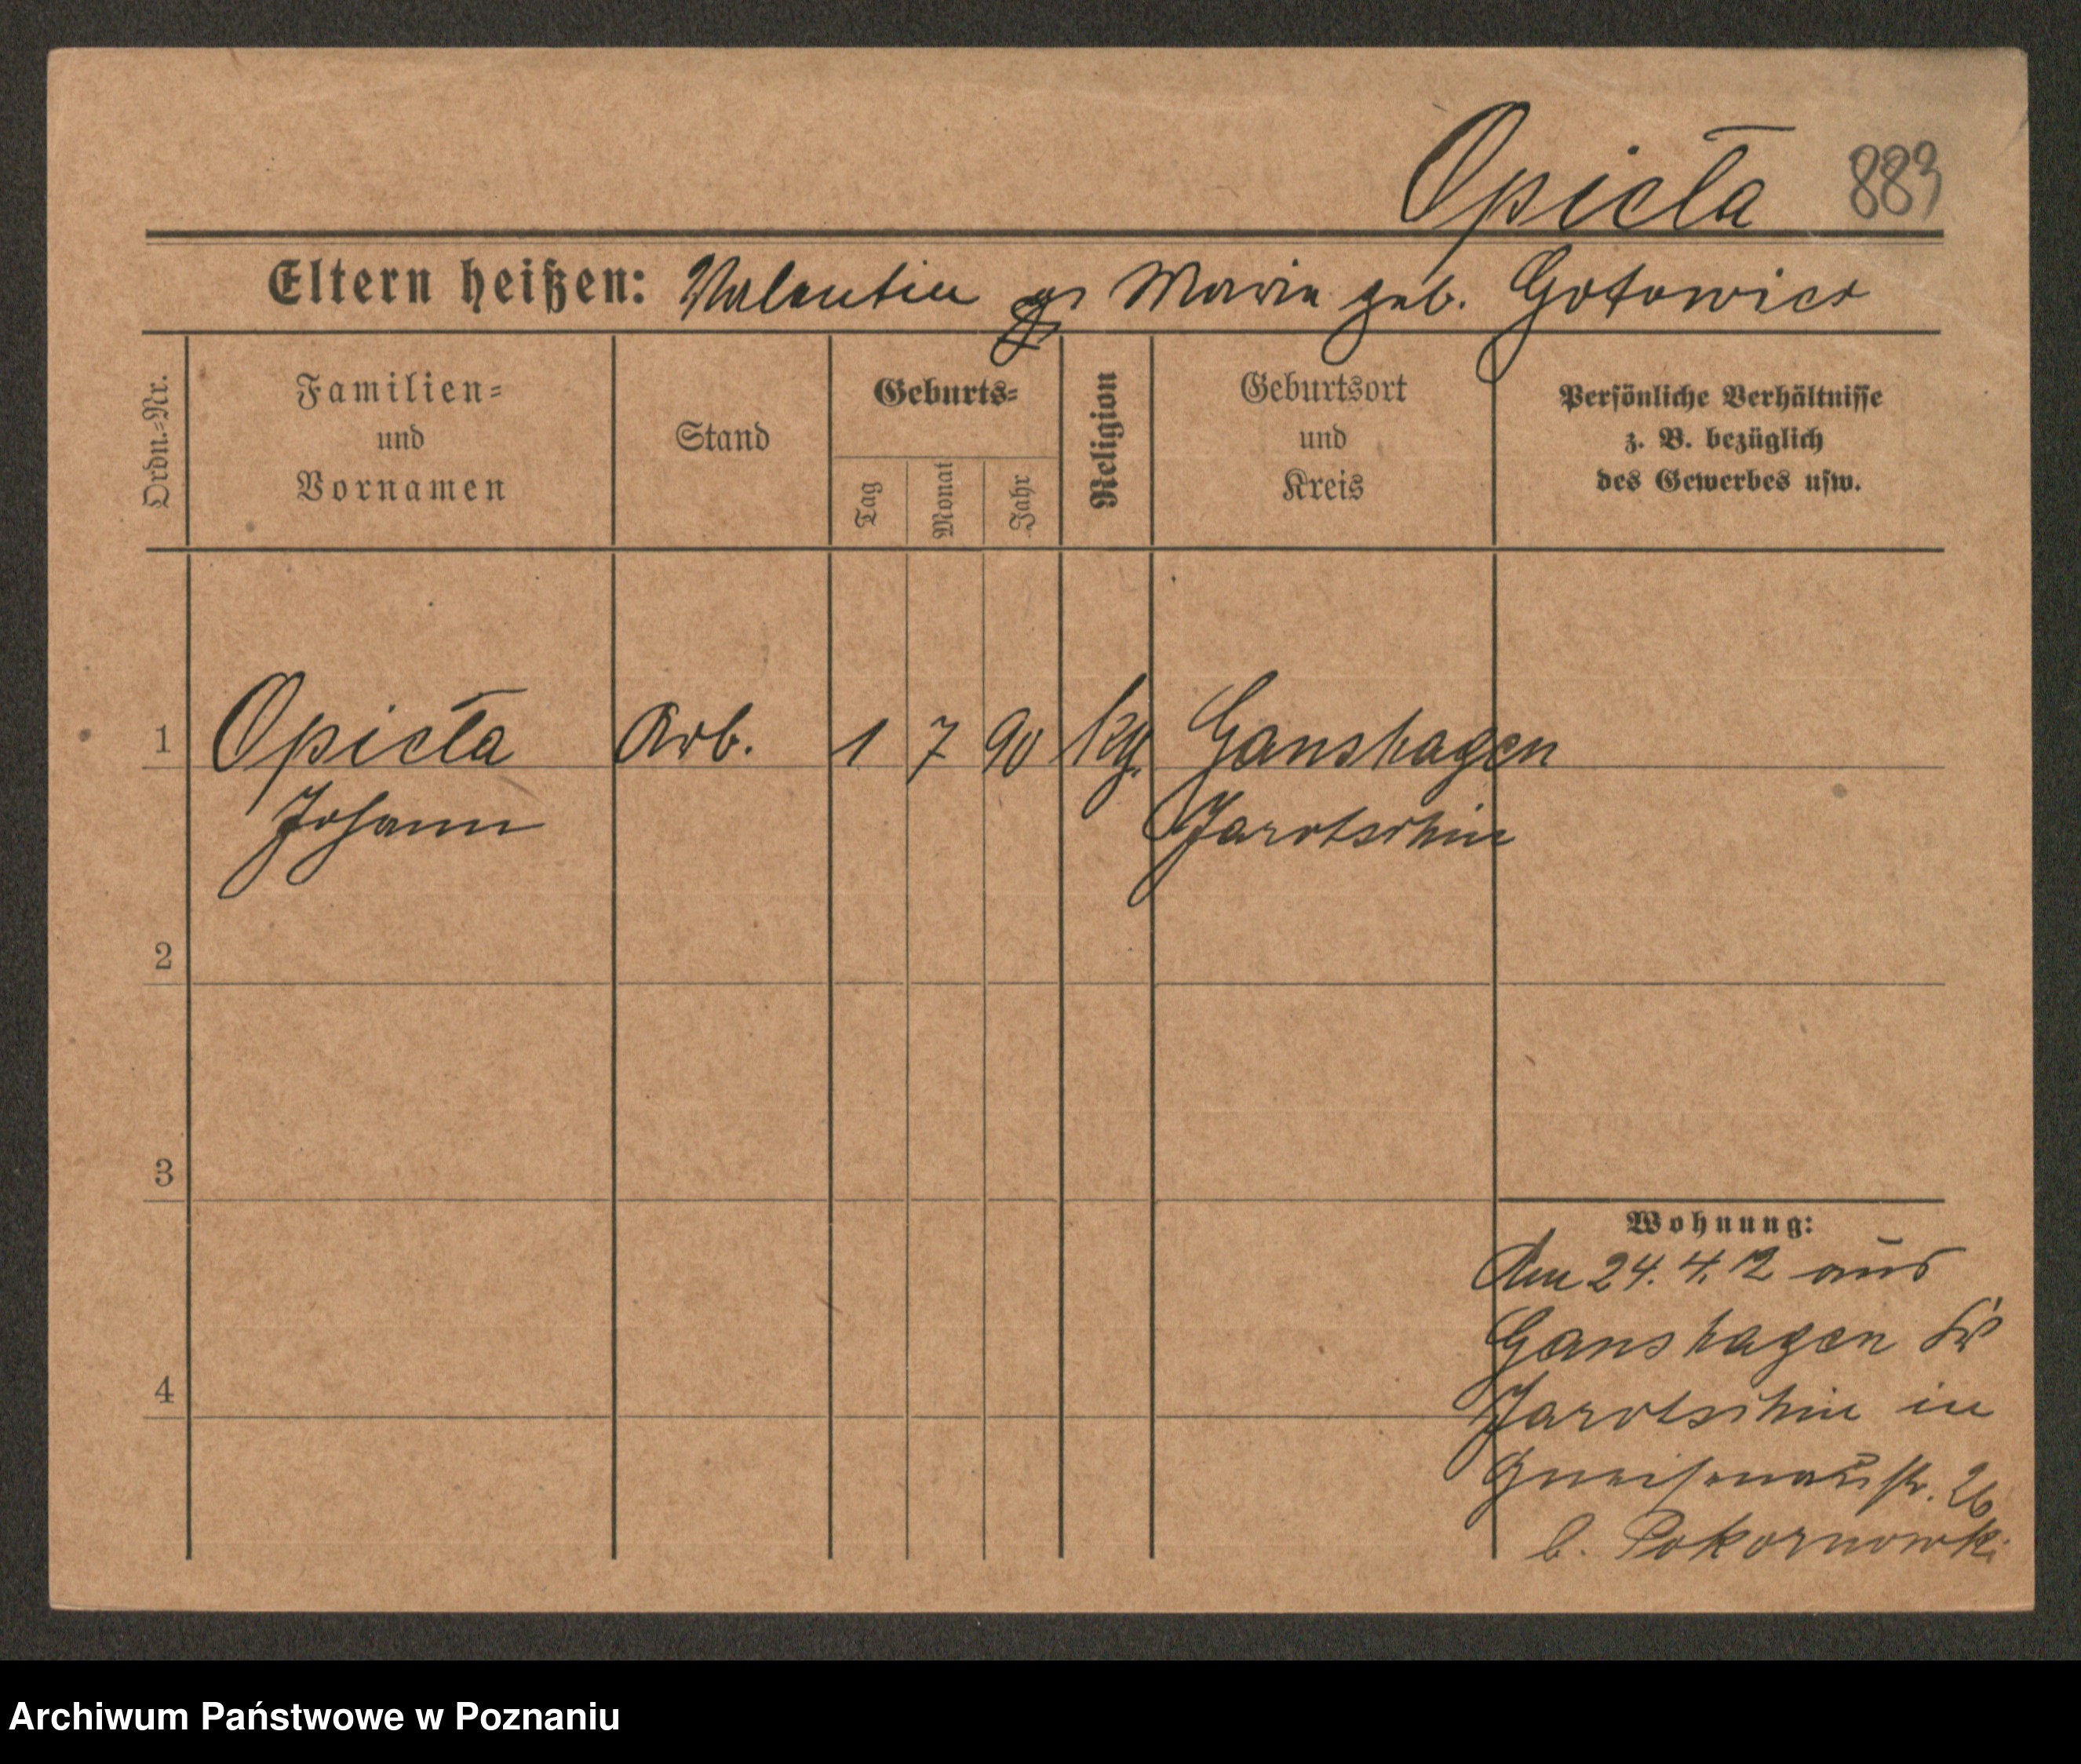 Opieła 883
Eltern heißen: Valentin Marie geb. Gotowicz
Ordn.-Nr.
Familien-
und
Vornamen
Stand
Geburts-
Tag
Monat
Jahr
Religion
Geburtsort
und
Kreis
Persönliche Verhältnisse
z. B. bezüglich
des Gewerbes usw.
1 Opieła Arb. 1 7 90 Kg. Ganshagen
Johann Jarotschin
2
3
4
Wohnung:
Am 24.4.12 aus
Ganshagen Kr
Jarotschin in
Gneisenaustr. 26
b. Pokornowki
Archiwum Państwowe w Poznaniu